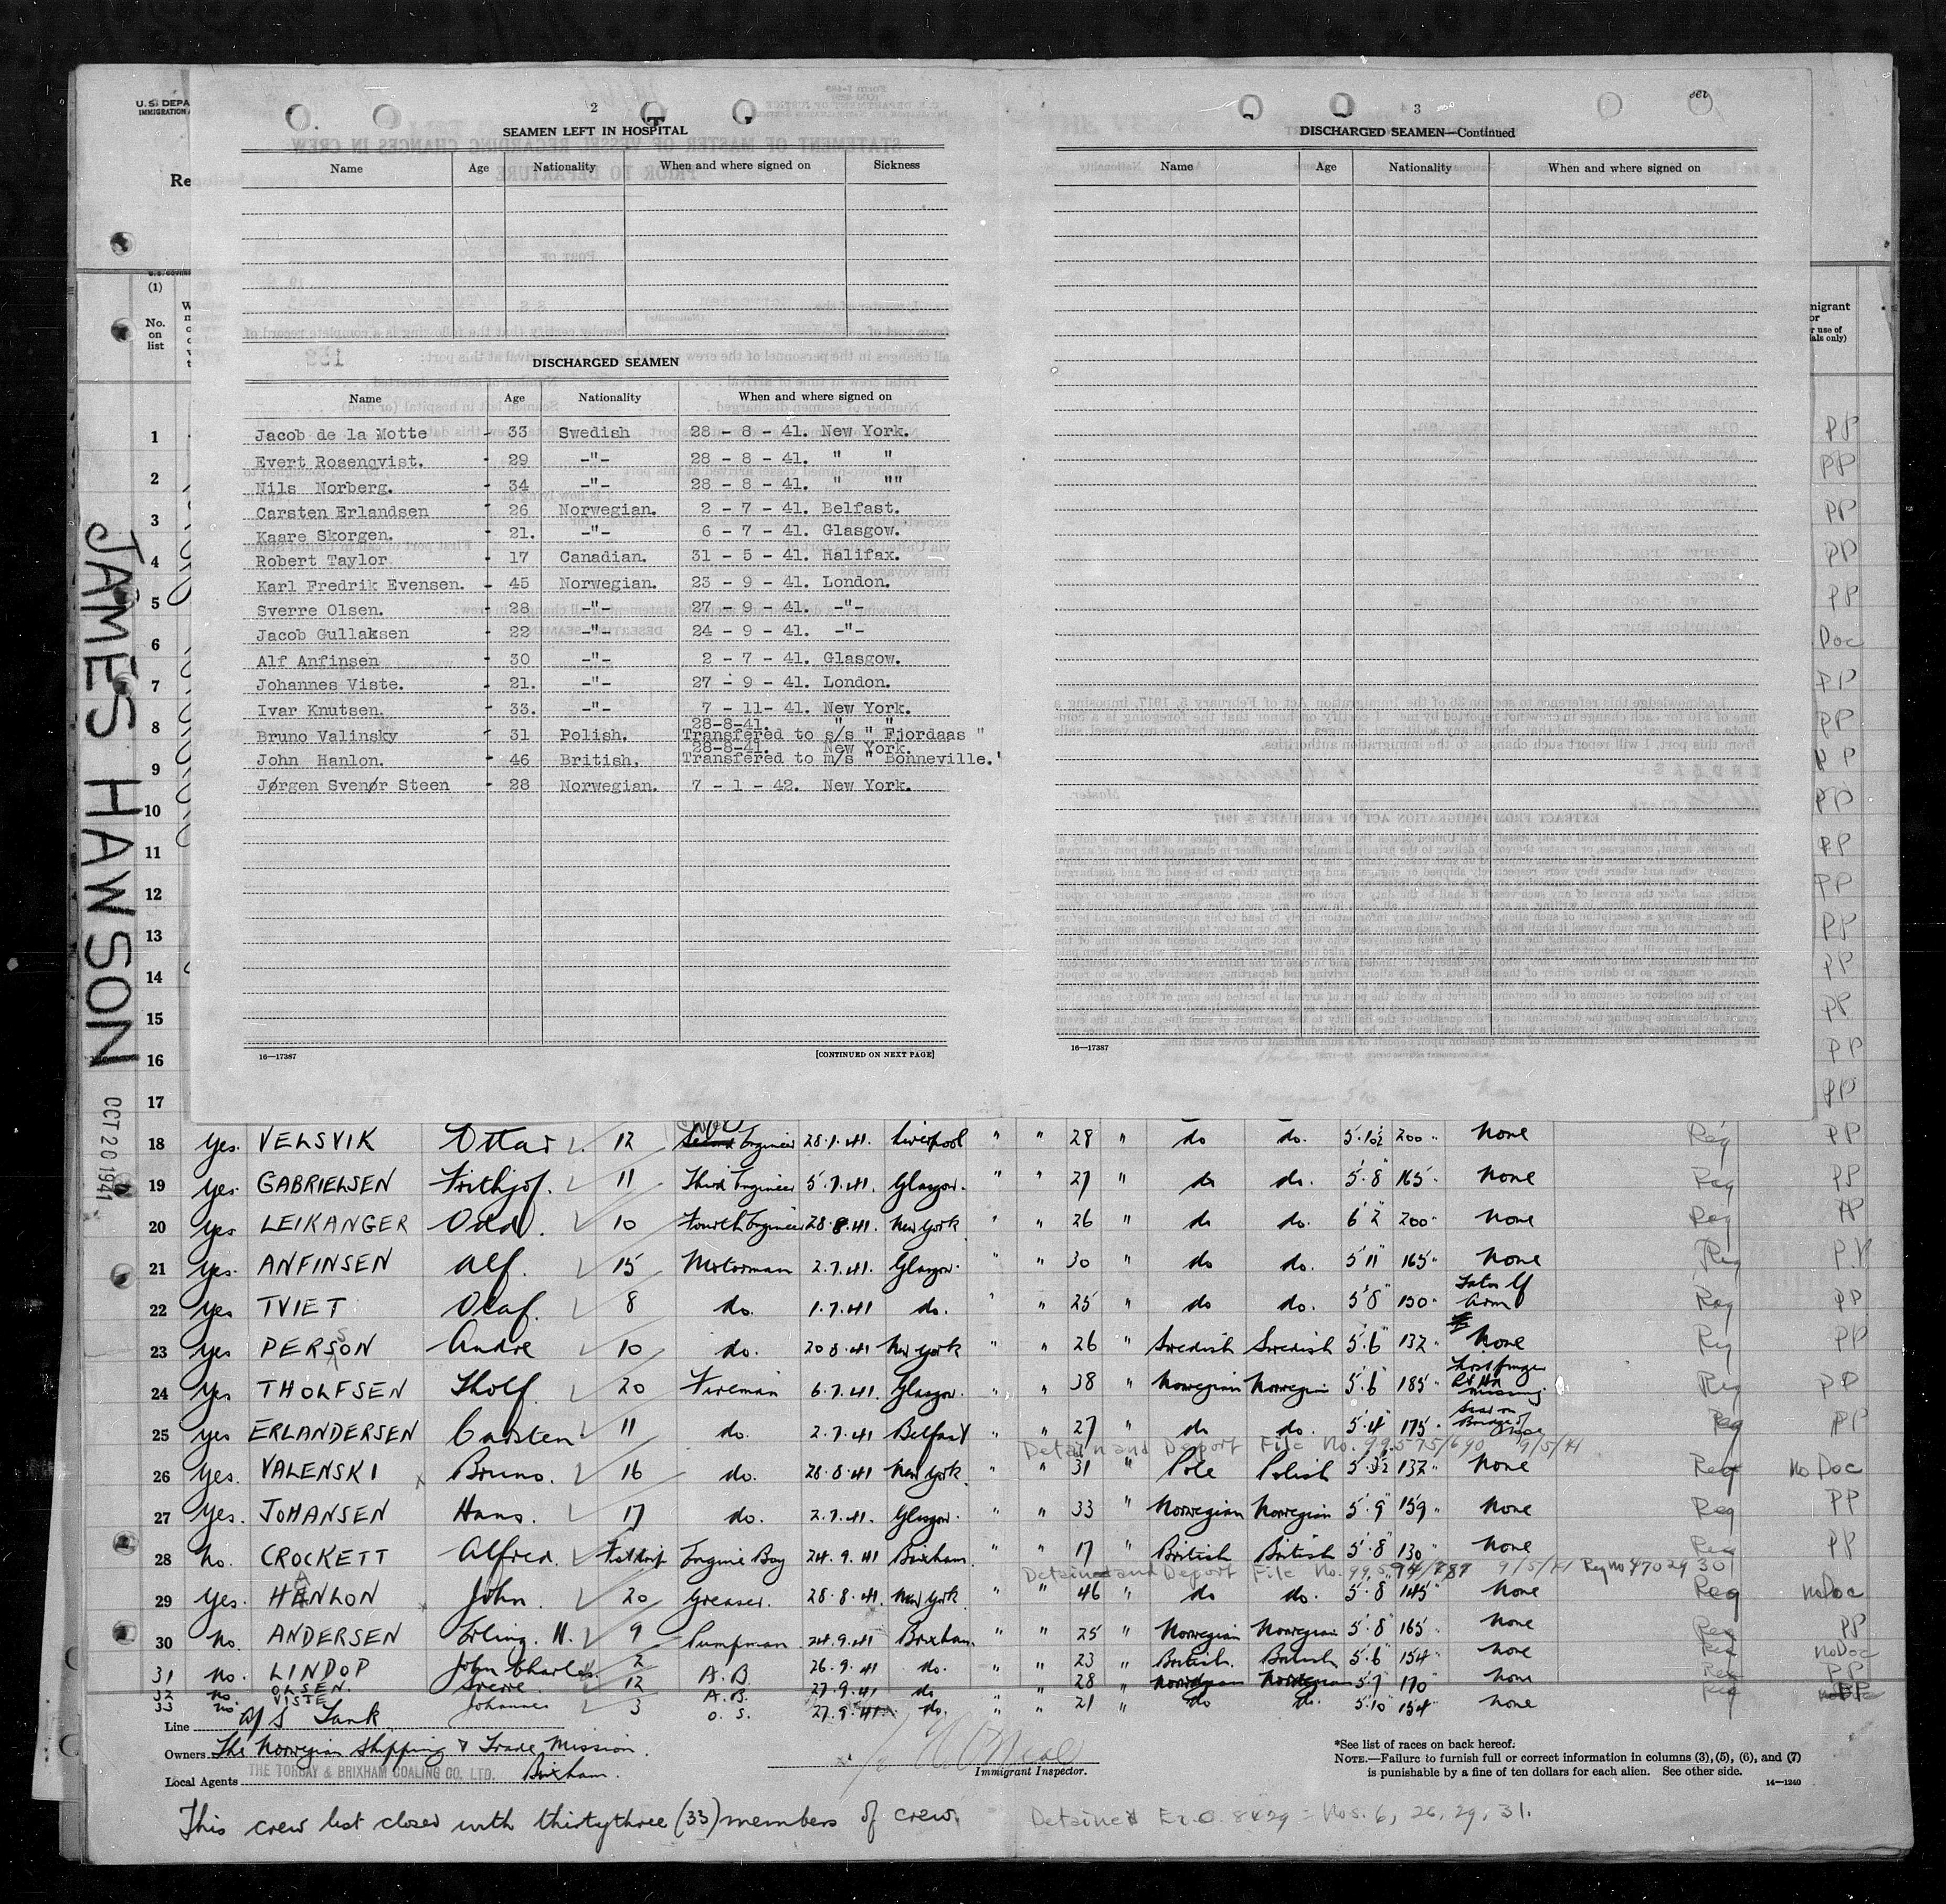 U.S. DEPA
IMMIGRATION
Re
(1)
No.
on
list
JAMES HAWSON
OCT 20 1941
2
SEAMEN LEFT IN HOSPITAL
Name Age Nationality When and where signed on Sickness
DISCHARGED SEAMEN
Name Age Nationality When and where signed on
Jacob de la Motte - 33 Swedish 28 - 8 - 41. New York.
Evert Rosenqvist. - 29 -"- 28 - 8 - 41. " "
Nils Norberg. - 34 -"- 28 - 8 - 41. " ""
Carsten Erlandsen - 26 Norwegian. 2 - 7 - 41. Belfast.
Kaare Skorgen. - 21. -"- 6 - 7 - 41. Glasgow.
Robert Taylor - 17 Canadian. 31 - 5 - 41. Halifax.
Karl Fredrik Evensen. - 45 Norwegian. 23 - 9 - 41. London.
Sverre Olsen. - 28 -"- 27 - 9 - 41. -"-
Jacob Gullaksen - 22 -"- 24 - 9 - 41. -"-
Alf Anfinsen - 30 -"- 2 - 7 - 41. Glasgow.
Johannes Viste. - 21. -"- 27 - 9 - 41. London.
Ivar Knutsen. - 33. -"- 7 - 11- 41. New York.
28-8-41. " "
Bruno Valinsky - 31 Polish. Transfered to s/s " Fjordaas "
28-8-41. New York.
John Hanlon. - 46 British. Transfered to m/s " Bonneville."
Jørgen Svenør Steen - 28 Norwegian. 7 - 1 - 42. New York.
16—17387 [CONTINUED ON NEXT PAGE]
3
DISCHARGED SEAMEN—Continued
Name Age Nationality When and where signed on
16—17387
migrant
or
r use of
ials only)
1 PP
2 PP
3 PP
4 PP
5 PP
6 Doc
7 PP
8 PP
9 PP
10 PP
11 PP
12 PP
13 PP
14 PP
15 PP
16 PP
17 PP
18 Yes. VELSVIK Ottar 12 Engineer 28.7.41. Liverpool " " 28 " do do. 5'10½ 200 " None Reg PP
19 Yes. GABRIELSEN Frithjof. 11 Third Engineer 5.7.41. Glasgow. " " 27 " do do. 5'8" 165 " None Reg PP
20 Yes LEIKANGER Odd. 10 Fourth Engineer 28.8.41. New York " " 26 " do do. 6'2" 200 " None Reg PP
21 Yes. ANFINSEN Alf. 15 Motorman 2.7.41. Glasgow. " " 30 " do do. 5'11" 165 " None Reg PP
22 Yes TVIET Olaf. 8 do. 1.7.41 do. " " 25 " do do. 5'8" 150 " Arm Reg PP
23 Yes PERSSON Andre 10 do. 20.8.41 New York " " 26 " Swedish Swedish 5'6" 132 " None Reg PP
24 Yes THOLFSEN Tholf. 20 Fireman 6.7.41. Glasgow. " " 38 " Norwegian Norwegian 5'6" 185 " finger Rt Hd missing Reg PP
25 Yes ERLANDERSEN Carsten 11 do. 2.7.41 Belfast " " 27 " do do. 5'4" 175 " Scar on Bridge of nose Reg PP
Detain and Deport File No. 99575/690 9/5/41
26 Yes. VALENSKI Bruno. 16 do. 28.8.41 New York. " " 31 " Pole Polish 5'3½ 137 " None Reg No Doc
27 Yes. JOHANSEN Hans. 17 do. 2.7.41. Glasgow. " " 33 " Norwegian Norwegian 5'9" 159 " None Reg PP
28 No. CROCKETT Alfred. First trip Engine Boy 24.9.41 Brixham. " " 17 " British British 5'8" 130 " None Reg PP
Detain and Deport File No. 9/5/41 Reg No 4702930
29 Yes. HANLON John. 20 Greaser. 28.8.41. New York. " " 46 " do do. 5'8 145 " None Reg no Doc
30 No. ANDERSEN Erling. H. 9 Pumpman 24.9.41 Brixham. " " 25 " Norwegian Norwegian 5'8" 165 " None Reg PP
31 No. LINDOP John Charles. 2 A.B. 26.9.41 do. " " 23 British. British 5'6" 154 " None Reg no Doc
32 No OLSEN. Sverre. 12 A.B. 27.9.41 do " " 28 Norwegian Norwegian 5'7 170 " None Reg PP
33 No VISTE Johannes 3 O.S. 27.9.41 do. " " 21 " do do. 5'10" 154 " None Reg PP
Line A/S Tank
Owners The Norwegian Shipping & Trade Mission.
Local Agents THE TORBAY & BRIXHAM COALING CO. LTD. Brixham.
Immigrant Inspector.
*See list of races on back hereof.
NOTE.—Failure to furnish full or correct information in columns (3), (5), (6), and (7)
is punishable by a fine of ten dollars for each alien. See other side.
14—1240
This crew list closed with thirtythree (33) members of crew.
Detained Ex.O. 8429 = Nos. 6, 26, 29, 31.